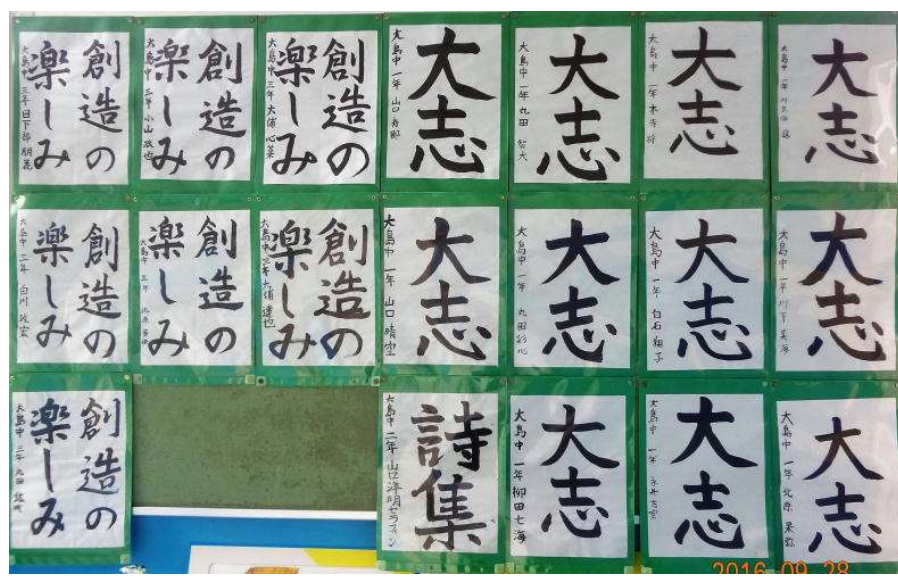 創造の
楽しみ
大島中 三年 日下部朋花
創造の
楽しみ
大島中 三年 小山政也
創造の
楽しみ
大島中 三年 大浦心菜
大志
大島中 一年 山口
大志
大島中 一年 丸田
大志
大島中 一年
大志
大島中
創造の
楽しみ
大島中 三年 白川政宏
創造の
楽しみ
大島中 三年
創造の
楽しみ
大島中 三年 大浦達也
大志
大島中 一年 山口晴空
大志
大島中 一年 丸田彩心
大志
大島中 一年 白石翔子
大志
大島中 一年 川下美海
創造の
楽しみ
大島中 三年 丸田
詩集
大島中 二年 山口洋明セラフィン
大志
大島中 一年 柳田七海
大志
大島中 一年
大志
大島中 一年 北原
2016 09 28